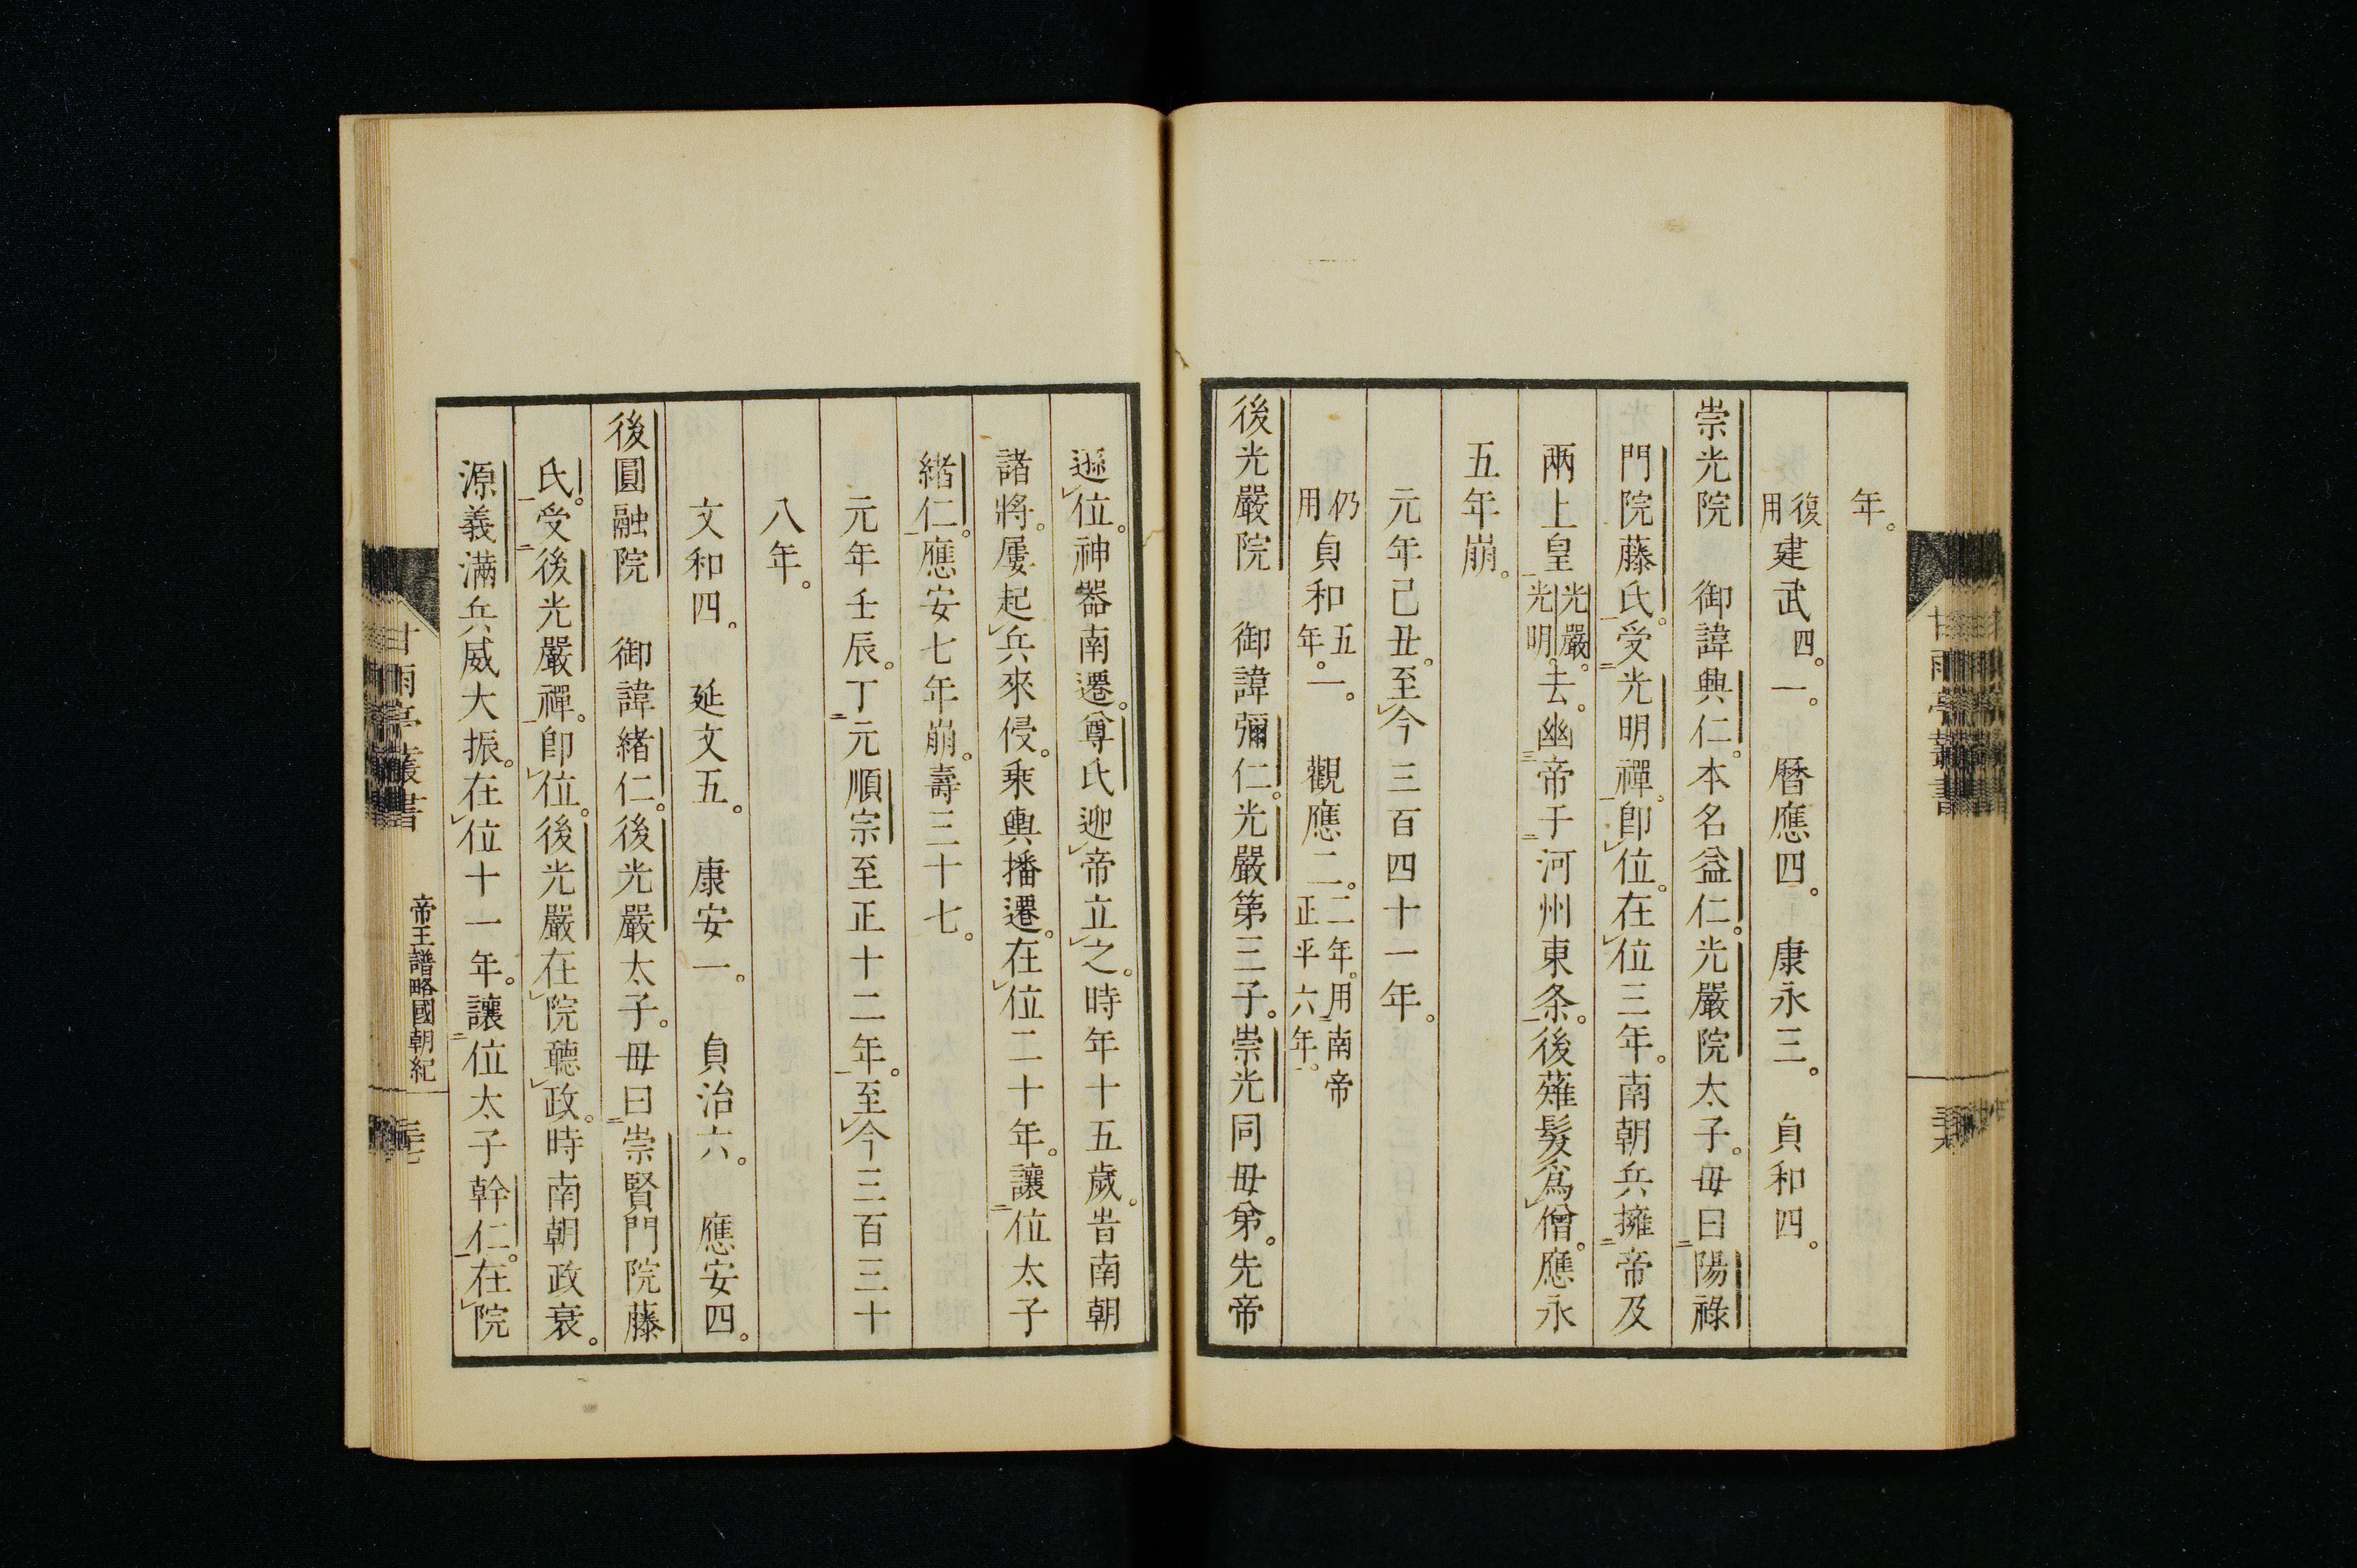 年。
復用建武四。一。　曆應四。　康永三。　貞和四。
崇光院　御諱興仁。本名益仁。光嚴院太子。母曰陽祿
門院藤氏。受光明禪。卽位。在位三年。南朝兵擁帝及
兩上皇光嚴。光明。去。幽帝于河州東条。後薙髮爲僧。應永
五年崩。
元年己丑。至今三百四十一年。
仍用貞和五年。一。　觀應二。二年。用南帝正平六年。
後光嚴院　御諱彌仁。光嚴第三子。崇光同母弟。先帝
遜位。神器南遷。尊氏迎帝立之。時年十五歲。昔南朝
諸將。屢起兵來侵。乘輿播遷。在位二十年。讓位太子
緒仁。應安七年崩。壽三十七。
元年壬辰。丁元順宗至正十二年。至今三百三十
八年。
文和四。　延文五。　康安一。　貞治六。　應安四。
後圓融院　御諱緒仁。後光嚴太子。母曰崇賢門院藤
氏。受後光嚴禪。卽位。後光嚴在院聽政。時南朝政衰。
源義滿兵威大振。在位十一年。讓位太子幹仁。在院
甘雨亭叢書
帝王譜略國朝紀